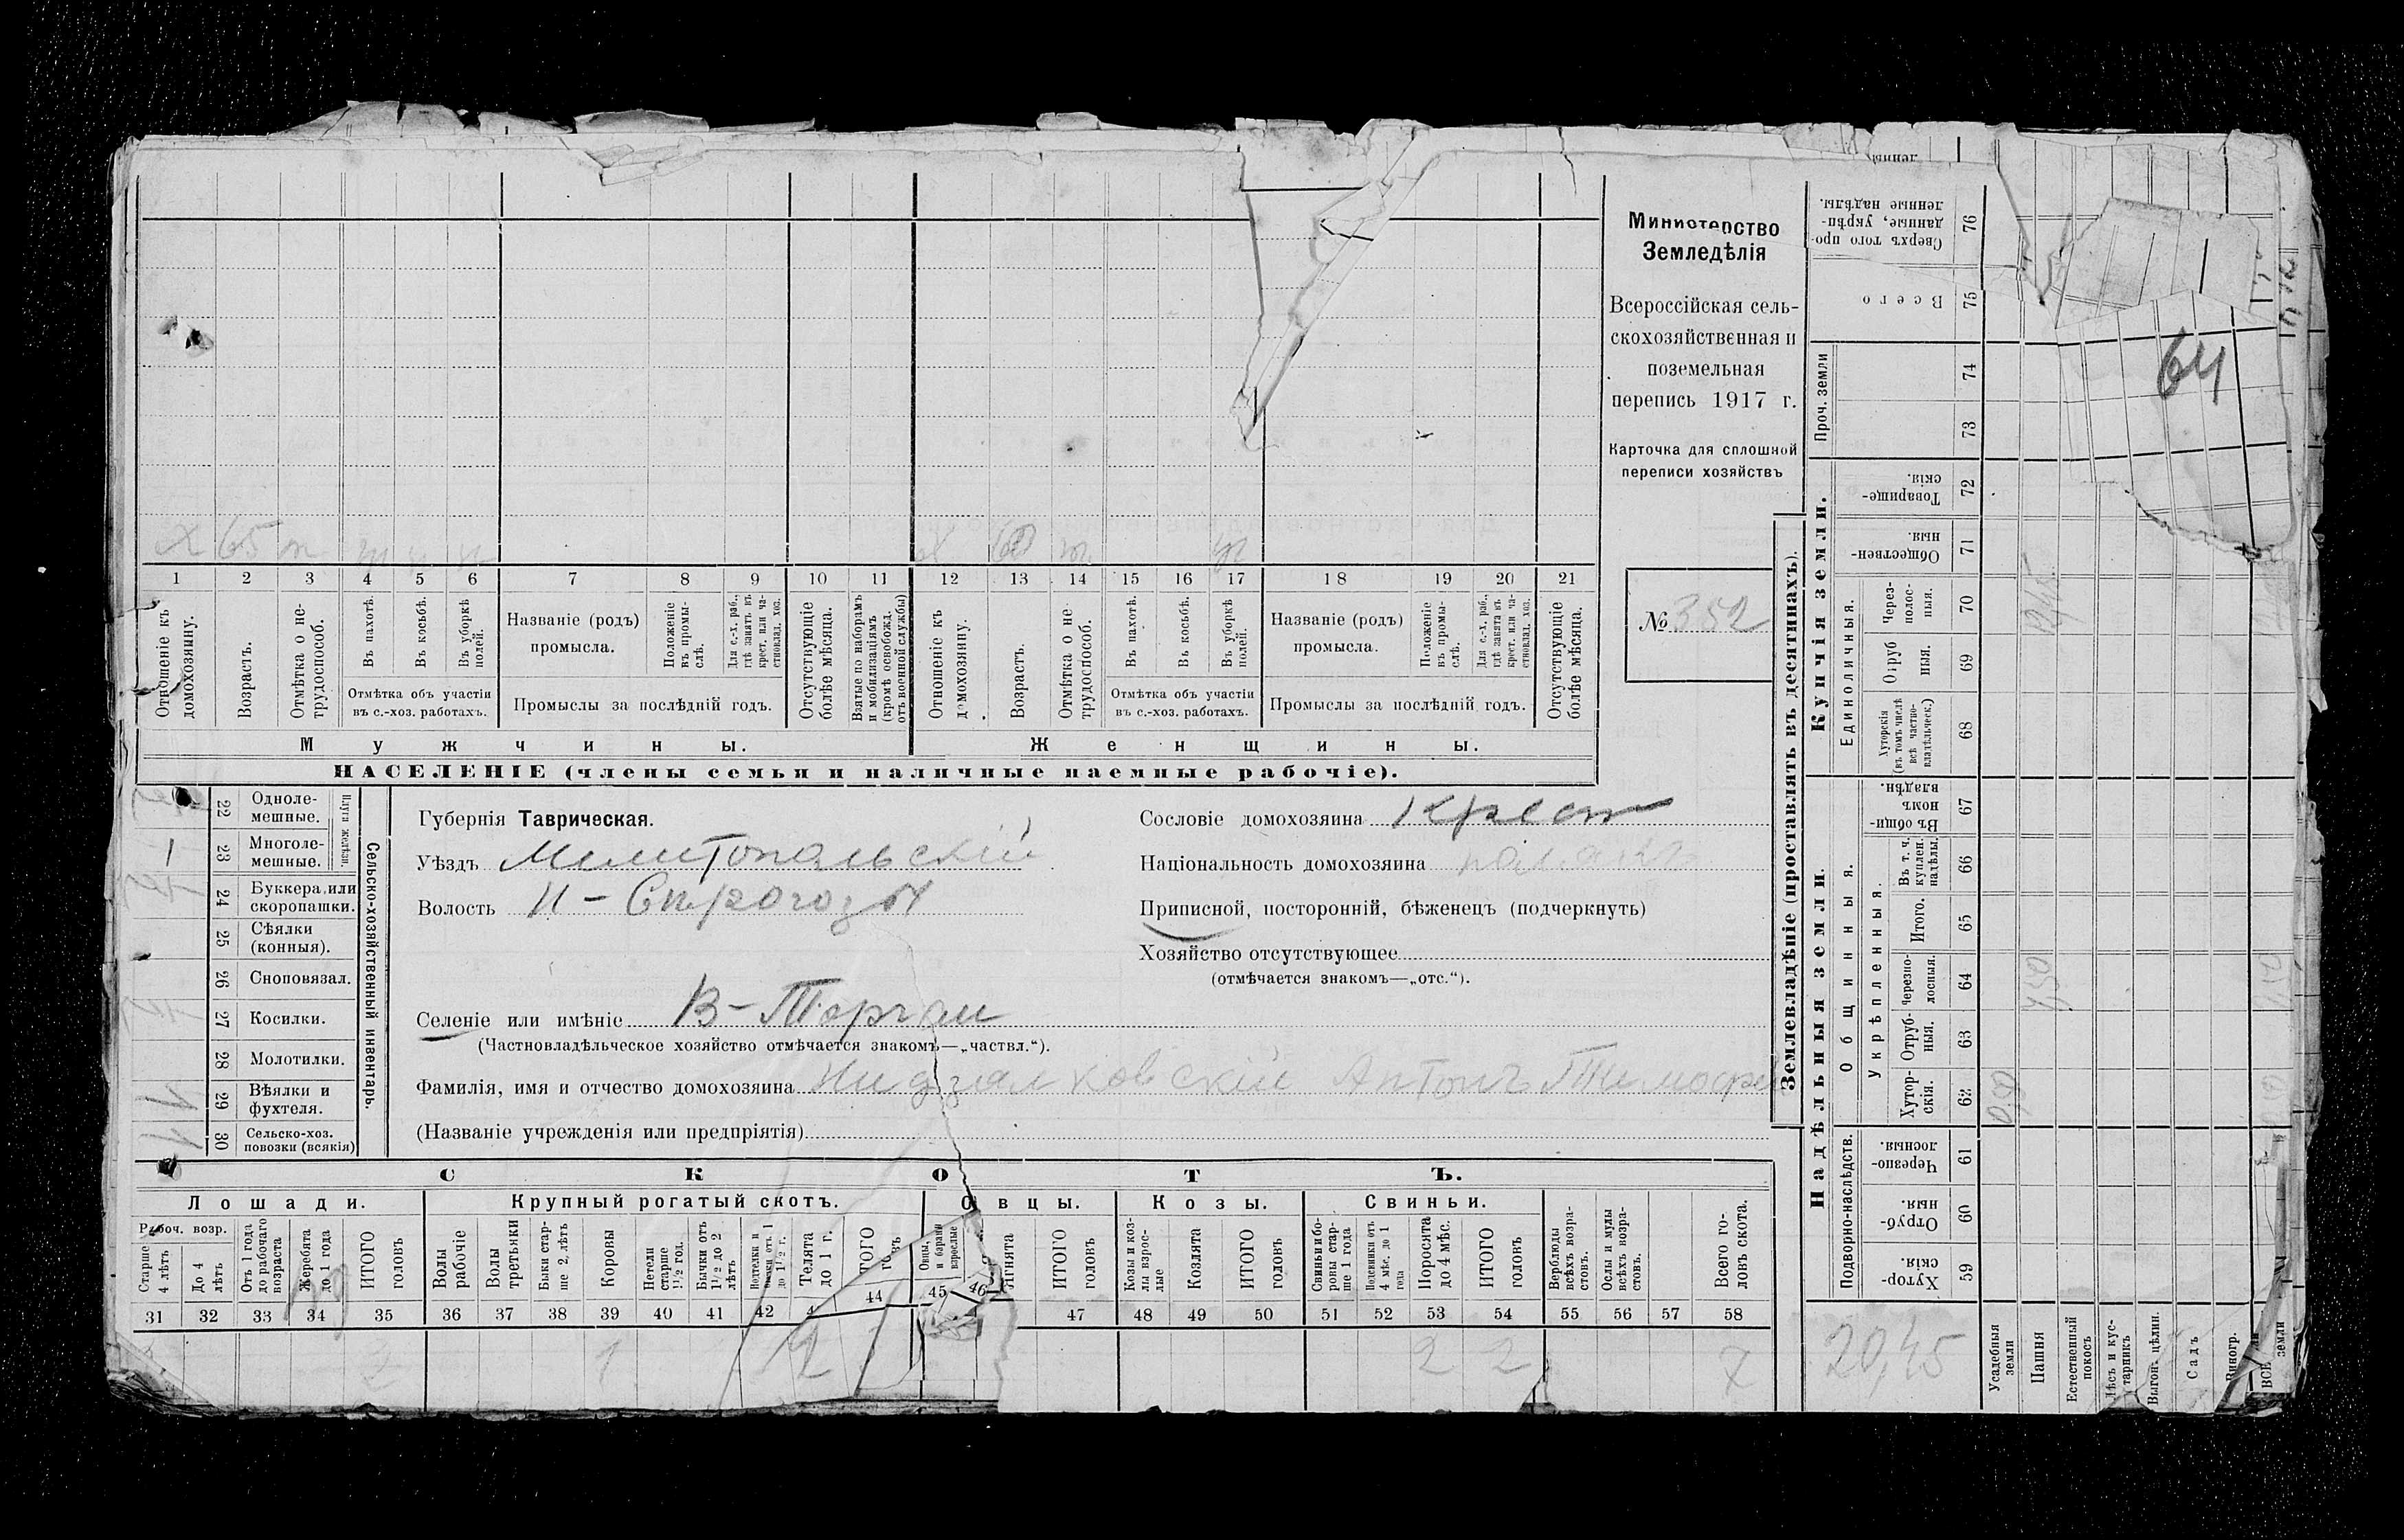 Министерство
Земледѣлія
Всероссійская сель-
скохозяйственная и
поземельная
перепись 1917 г.
Карточка для сплошной
переписи хозяйствъ
№ 352
64
х 65
1 2 3 4 5 6 7 8 9 10 11 12 13 14 15 16 17 18 19 20 21
Отношеніе къ домохозяину.
Возрастъ.
Отмѣтка о не-трудоспособ.
Въ пахотѣ.
Въ косьбѣ.
Въ уборкѣ полей.
Отмѣтка объ участіи
въ с.-хоз. работахъ.
Названіе (родъ)
промысла.
Положеніе въ промы-слѣ.
Для с.-х. раб., гдѣ занятъ въ крест. или ча-стновлад. хоз.
Промыслы за послѣдній годъ.
Отсутствующіе болѣе мѣсяца.
Взятые по наборамъ и мобилизаціямъ (кромѣ освобожд. отъ военной службы)
Отношеніе къ домохозяину.
Возрастъ.
Отмѣтка о не-трудоспособ.
Въ пахотѣ.
Въ косьбѣ.
Въ уборкѣ полей.
Отмѣтка объ участіи
въ с.-хоз. работахъ.
Названіе (родъ)
промысла.
Положеніе въ промы-слѣ.
Для с.-х. раб., гдѣ занята въ крест. или ча-стновлад. хоз.
Промыслы за послѣдній годъ.
Отсутствующіе болѣе мѣсяца.
Мужчины.
Женщины.
НАСЕЛЕНІЕ (члены семьи и наличные наемные рабочіе).
Сельско-хозяйственный инвентарь.
Плуги желѣзн.
22 Одноле-мешные.
23 Многоле-мешные. 1
24 Буккера или скоропашки.
25 Сѣялки (конныя).
26 Сноповязал.
27 Косилки.
28 Молотилки.
29 Вѣялки и фухтеля. 1
30 Сельско-хоз. повозки (всякія) 1
Губернія Таврическая.
Уѣздъ Мелитопальскій
Волость Н-Сирогозы
Селеніе или имѣніе В-Торгаи
(Частновладѣльческое хозяйство отмѣчается знакомъ—„частвл.“).
Фамилія, имя и отчество домохозяина Нидзялковскій Антонъ Тимоф
(Названіе учрежденія или предпріятія)
Сословіе домохозяина Крест
Національность домохозяина полякъ
Приписной, посторонній, бѣженецъ (подчеркнуть)
Хозяйство отсутствующее
(отмѣчается знакомъ—„отс.“).
СКОТЪ.
Лошади.
Крупный рогатый скотъ.
Овцы.
Козы.
Свиньи.
Рабоч. возр.
Старше 4 лѣтъ
До 4 лѣтъ
Отъ 1 года до рабочаго возраста
Жеребята до 1 года
ИТОГО головъ
Волы рабочіе
Волы третьяки
Быки стар-ше 2 лѣтъ
Коровы
Нетели старше 1½ год.
Бычки отъ 1½ до 2 лѣтъ
Телята до 1 г.
ИТОГО
Овцы, и бараны взрослые
ИТОГО головъ
Козы и коз-лы взрос-лые
Козлята
ИТОГО головъ
Свиньи и бо-ровы стар-ше 1 года
Подсвинки отъ 4 мѣс. до 1 года
Поросята до 4 мѣс.
ИТОГО головъ
Верблюды всѣхъ возра-стовъ.
Ослы и мулы всѣхъ возра-стовъ.
Всего го-ловъ скота.
31 32 33 34 35 36 37 38 39 40 41 42 44 45 46 47 48 49 50 51 52 53 54 55 56 57 58
2 1 2 2 2 7
Землевладѣніе (проставлять въ десятинахъ).
Надѣльныя земли.
Купчія земли.
Проч. земли
Подворно-наслѣдств.
Общинныя.
Укрѣпленныя.
Единоличныя.
59 Хутор-скія.
60 Отруб-ныя.
61 Черезпо-лосныя.
62 Хутор-скія.
63 Отруб-ныя.
64 Черезпо-лосныя.
65 Итого.
66 Въ т. ч. куплен. надѣлы.
67 Въ общи-номъ владѣн.
68 Хуторскія (въ томъ числѣ всѣ частно-владѣльческ.)
69 Отруб ныя.
70 Через-полос-ныя.
71 Обществен-ныя.
72 Товарище-скія.
73
74
75 Всего
76 Сверхъ того про-данные, укрѣп-ленные надѣлы.
20,45
Усадебныя земли
Пашня
Естественный покосъ
Лѣсъ и кус-тарникъ
Выгонъ цѣлин.
Садъ
Виногр.
земли